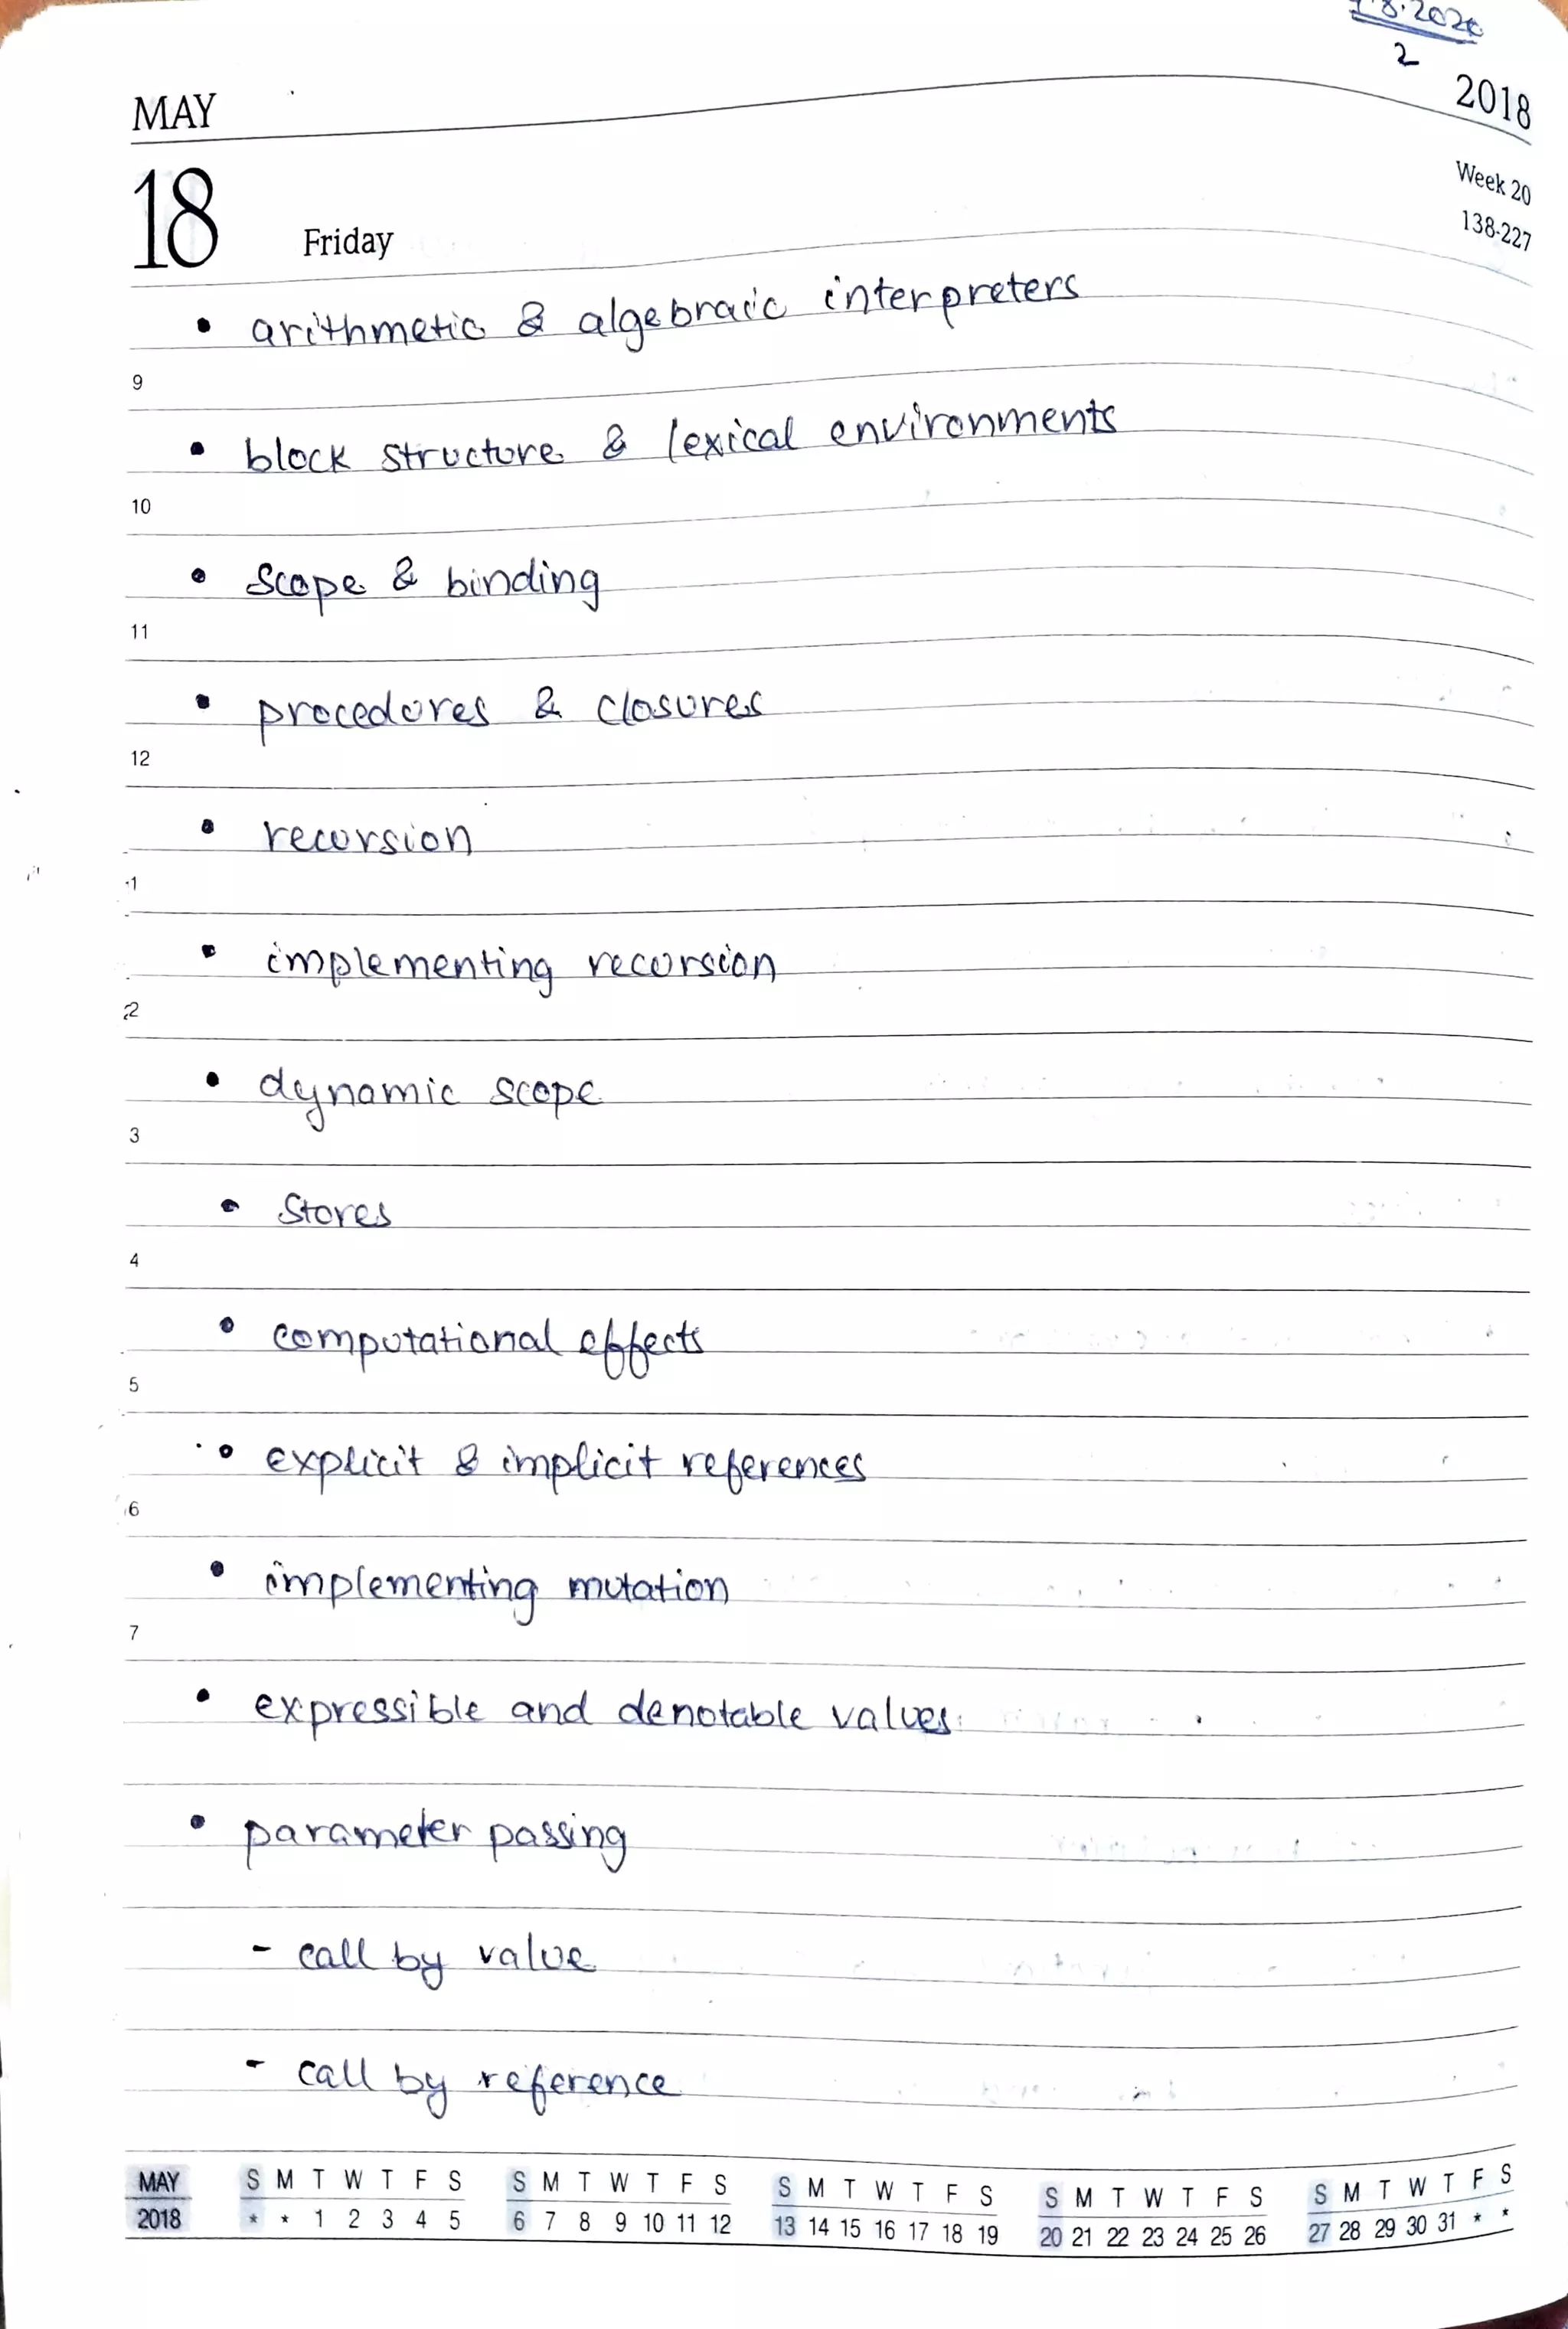 MAY
2018
2
18 Friday
Week 20
138-227
• arithmetic & algebraic interpreters
9
• block structure & lexical environments
10
• Scope & binding
11
• procedures & closures
12
• recursion
1
• implementing recursion
2
• dynamic scope
3
• Stores
4
• computational effects
5
• explicit & implicit references
6
• implementing mutation
7
• expressible and denotable values
• parameter passing
- call by value
- call by reference
MAY S M T W T F S S M T W T F S S M T W T F S S M T W T F S S M T W T F S
2018 * * 1 2 3 4 5 6 7 8 9 10 11 12 13 14 15 16 17 18 19 20 21 22 23 24 25 26 27 28 29 30 31 * *